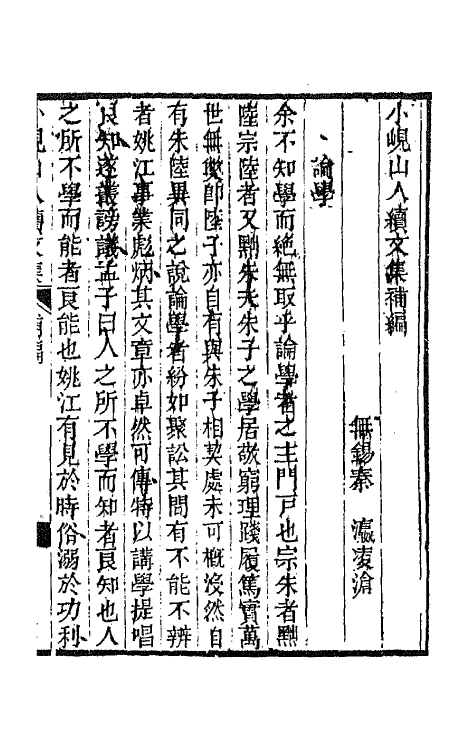 小峴山人續文集補編
無錫秦 瀛凌滄
論學
余不知學而絶無取乎論學者之主門戸也宗朱者黜
陸宗陸者又黜朱夫朱子之學居敬窮理踐履篤實萬
世無獘卽陸子亦自有與朱子相契處未可概沒然自
有朱陸異同之說論學者紛如聚訟其間有不能不辨
者姚江事業彪炳其文章亦卓然可傳特以講學提唱
良知遂叢謗議孟子曰人之所不學而知者良知也人
之所不學而能者良能也姚江有見於時俗溺於功利
小峴山人續文集 補編